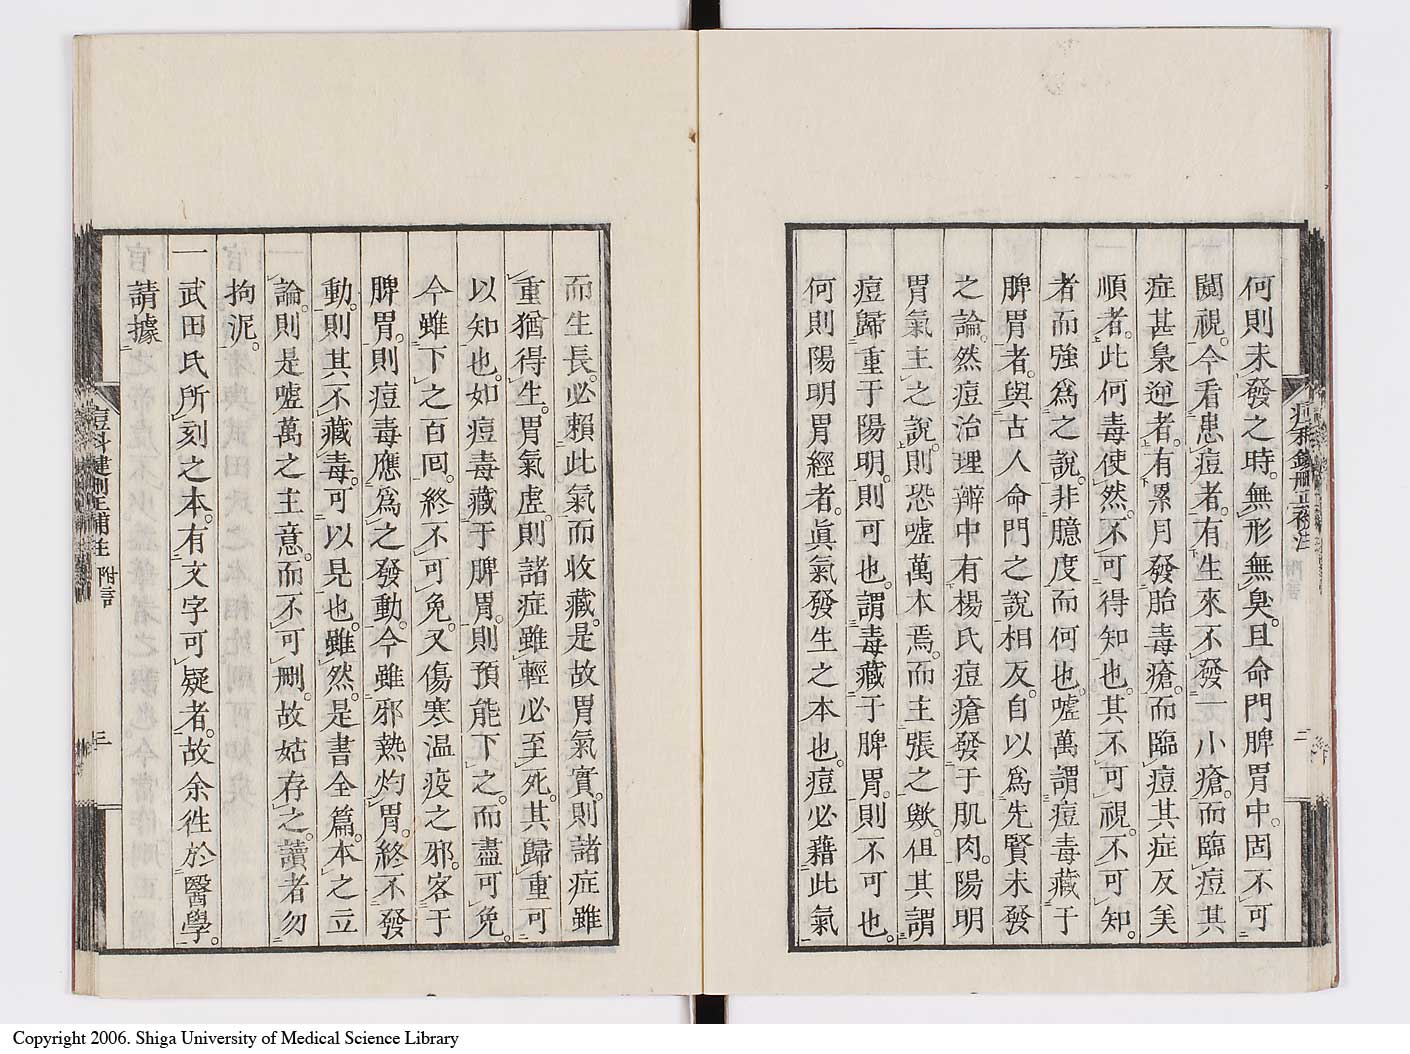 何則未發之時。無形無臭。且命門脾胃中。固不可
闚視。今看患痘者。有生來不發一小瘡。而臨痘其
症甚梟逆者。有累月發胎毒瘡。而臨痘其症反美
順者。此何毒使然。不可得知也。其不可視。不可知。
者而強爲之說。非臆度而何也。嘘萬謂痘毒藏于
脾胃者。與古人命門之說相反。自以爲先賢未發
之論。然痘治理辯中有楊氏痘瘡發于肌肉。陽明
胃氣主之說。則恐嘘萬本焉。而主張之歟。但其謂
痘歸重于陽明。則可也。謂毒藏于脾胃。則不可也。
何則陽明胃經者。眞氣發生之本也。痘必藉此氣
而生長。必賴此氣而收藏。是故胃氣實。則諸症雖
重猶得生。胃氣虛。則諸症雖輕必至死。其歸重可
以知也。如痘毒藏于脾胃。則預能下之。而盡可免。
今雖下之百回。終不可免。又傷寒温疫之邪。客于
脾胃。則痘毒應爲之發動。今雖邪熱灼胃。終不發
動。則其不藏毒。可以見也。雖然。是書全篇。本之立
論。則是嘘萬之主意。而不可刪。故姑存之。讀者勿
拘泥。
一武田氏所刻之本。有文字可疑者。故余徃於醫學。
請據
痘科鍵刪正補注 附言 三
二
Copyright 2006. Shiga University of Medical Science Library